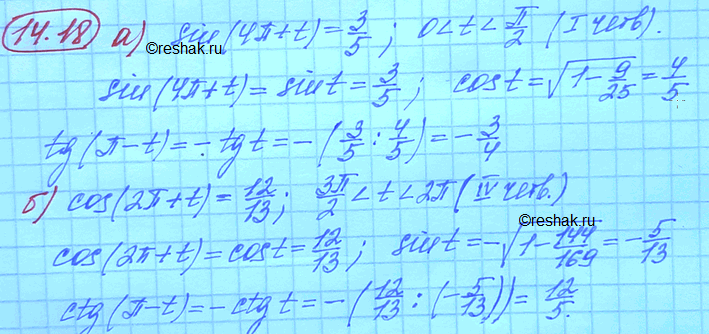 14.18 а) sin(4π+t)=3/5; 0<t<π/2 (I четв).
©reshak.ru
sin(4π+t)=sint=3/5; cost=√(1-9/25)=4/5;
tg(π-t)=-tgt=-(3/5:4/5)=-3/4
©reshak.ru
б) cos(2π+t)=12/13; 3π/2<t<2π (IV четв.)
©reshak.ru
cos(2π+t)=cost=12/13; sint=-√(1-144/169)=-5/13
ctg(π-t)=-ctgt=-(12/13:(-5/13))=12/5.